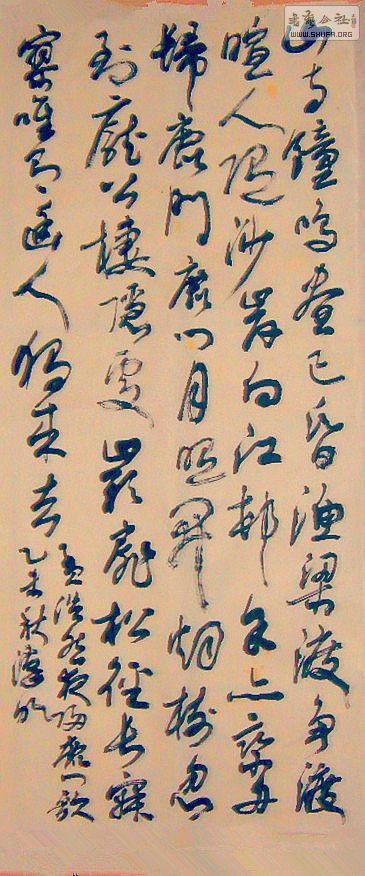 書法公社
WWW.SHUFA.ORG
山寺鐘鳴晝已昏漁梁渡争渡
喧人随沙岸向江邨余亦乘舟
歸鹿門鹿門月照開烟樹忽
到龐公棲隱處巖扉松徑長寂
寥唯有幽人獨來去
孟浩然夜歸鹿門歌
乙未秋